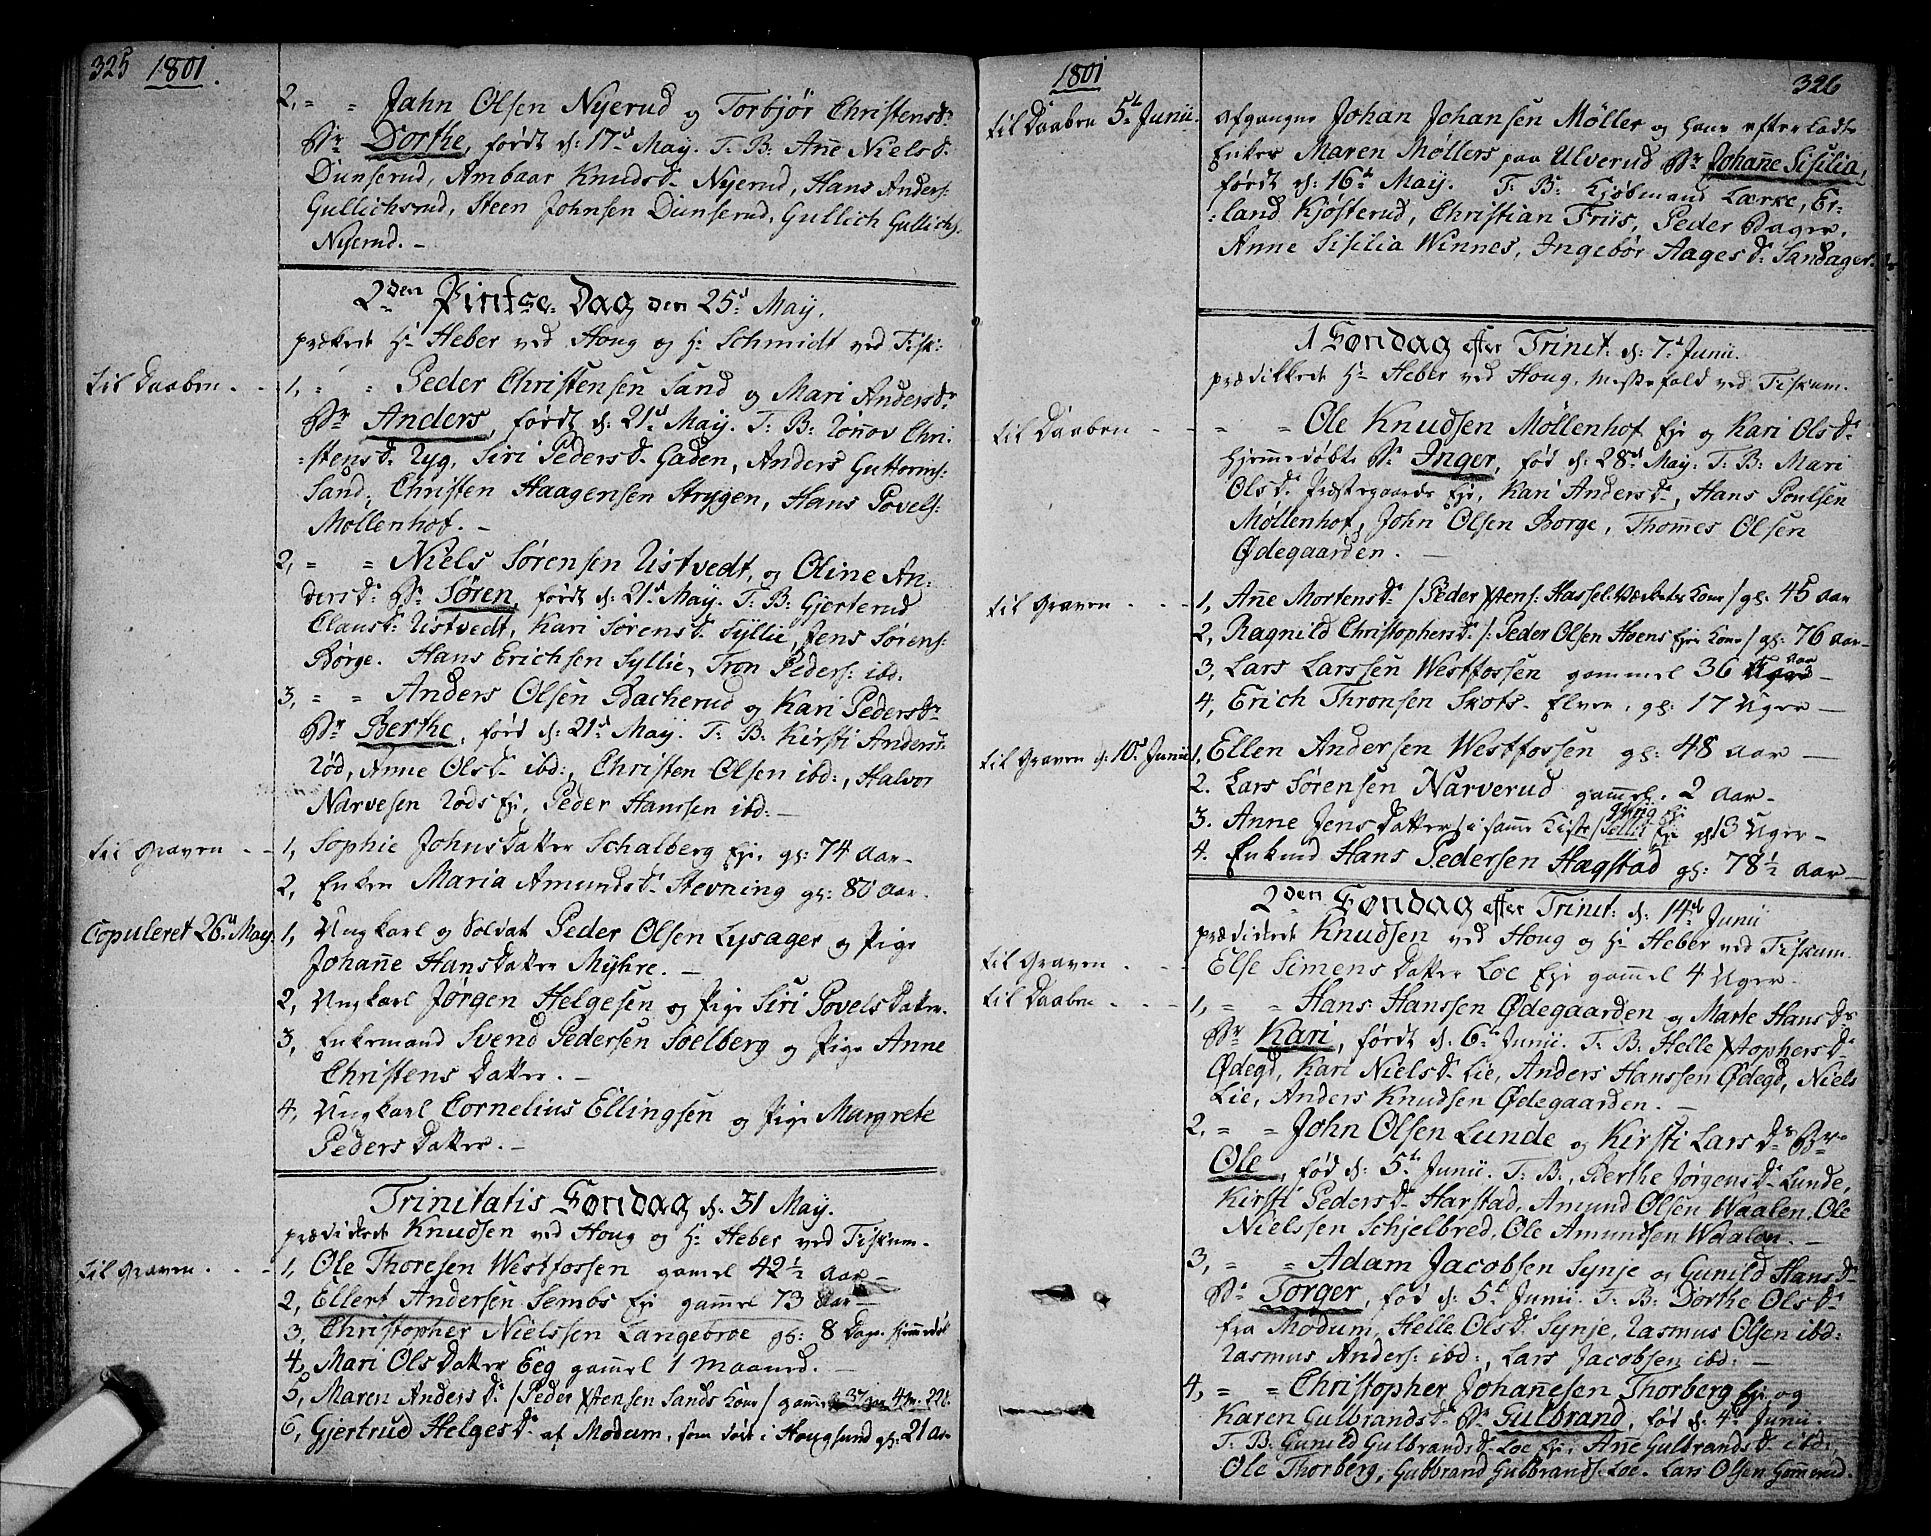 325 1801.
2, " " Jahn Olsen Nyerud og Torbjør Christensd:
Br Dorthe, født d: 17d May. T: B: Anne Nielsd:
Dunserud, Ambaar Knudsd: Nyerud, Hans Anders:
Gullichsrud, Steen Johnsen Dunserud, Gullich Gullichs:
Nyerud. -
2den Pintse-Dag den 25d May.
prækede Hr Heber ved Houg og Hr Schmidt ved Fisk:
til Daaben - -
1, " " Peder Christensen Sand og Mari Andersdr
Br Anders, født d: 21d May. T: B: Rønnov Chri-
:stensd: Ryg, Siri Pedersd: Gaden, Anders Guttorms:
Sand, Christen Haagensen Strygen, Hans Povels:
Møllenhof. -
2, " " Niels Sørensen Ustvedt, og Oline An-
dersd: Br Søren, født d: 21d May. T: B: Gjerterud
Clausd: Ustvedt, Kari Sørensd: Syllie, Jens Sørens:
Børge. Hans Erichsen Syllie, Tron Peders: ibd:
3, " " Anders Olsen Bacherud og Kari Pedersdr
Br Berthe, fød d: 21d May. T: B: Kirsti Anders:
Rød, Anne Olsd: ibd:, Christen Olsen ibd:, Halvor
Narvesen Røds Eje, Peder Hansen ibd: -
til Graven - -
1, Sophie Johnsdatter Schalberg Eje, gl: 74 Aar -
2, Enken Maria Amundsd: Stevning gl: 80 Aar.
Copuleret 26d May.
1, Ungkarl og Soldat Peder Olsen Lysager og Pige
Johanne Hansdatter Myhre. -
2, Ungkarl Jørgen Helgesen og Pige Siri Povels Datter.
3, Enkemand Svend Pedersen Soelberg og Pige Anne
Christens Datter. -
4, Ungkarl Cornelius Ellingsen og Pige Margrete
Peders Datter. -
Trinitatis Søndag d: 31 May.
prædikede Knudsen ved Houg og Hr Heber ved Fiskum -
til Graven. - -
1, Ole Thoresen Westfossen gamel 42½ Aar -
2, Ellert Andersen Sembs Eje gammel 73 Aar -
3, Christopher Nielssen Langebroe gl: 8 Dage hjemmedøbt
4, Mari Olsdatter Eeg gammel 1 Maaned. -
5, Maren Andersd: / Peder Xstensen Sands Kone / gammel 37 Aar
6, Gjertrud Helgesd: af Modum, som døde i Hougsund gl: 21 Aar
1801
326
til Daaben 5te Junii.
afgangne Johan Johansen Møller og hans efterladte
Enke Maren Møllers paa Ulverud Br Johanne Sisilia,
født d: 16d May. T: B: Kjøbmand Lærke, Er-
:land Kjøsterud, Christian Friis, Peder Bager,
Anne Sisilia Winnes, Ingebør Aagesd: Sandager.
1 Søndag efter Trinit: d: 7d Junii.
prædikkede Hr Heber ved Houg, Messefald ved Fiskum.
til Daaben - -
" " Ole Knudsen Møllenhof Eje og Kari Olsd:
hjemmedøbte Br Inger, fød d: 28d May. T: B: Mari
Olsd: Præstegaards Eje, Kari Andersd:, Hans Poulsen
Møllenhof, John Olsen Borge, Thomes Olsen
Ødegaarden. -
til Graven - - -
1, Anne Mortensd: / Peder Xstens: Hassel-Værkets Kone / gl: 45 Aar
2, Ragnild Christophersd: /: Peder Olsen Hoens Eje Kone / gl: 76 Aar -
3, Lars Larssen Westfossen gammel 36 Aar -
4, Erich Thronsen Skots-Elven, gl: 17 Uger -
til Graven d: 10d Junii
1, Ellen Andersen Westfossen gl: 48 Aar -
2. Lars Sørensen Narverud gammel. 2 Aar -
3. Anne Jens Datter / i samme Kiste / Eje gl: 3 Uger -
4. Enkmd Hans Pedersen Hagstad gl: 78½ Aar -
2den Søndag efter Trinit: d: 14d Junii
prædikede Knudsen ved Houg og Hr Heber ved Fiskum.
til Graven - -
Else Simens Datter Loe Eje gammel 4 Uger.
til Daaben - - -
1, " " Hans Hanssen Ødegaarden og Marte Hansdr
Br Kari, født d: 6te Junii. T: B: Helle Xtophersd:
Ødegd, Kari Nielsd: Lie, Anders Hanssen Ødegd, Niels
Lie, Anders Knudsen Ødegaarden. -
2, " " John Olsen Lunde og Kirsti Larsdr Br
Ole, fød d: 5te Junii. T: B:, Berthe Jørgensd: Lunde,
Kirsti Pedersd: Harstad, Amund Olsen Waalen, Ole
Nielssen Schjelbred, Ole Amundsen Waalen. -
3, " " Adam Jacobsen Synje og Gunild Hansd:
Br Torger, fød d: 5te Junii. T: B: Dorthe Olsd:
fra Modum, Helle Olsd: Synje, Rasmus Olsen ibd:
Rasmus Anders: ibd:, Lars Jacobsen ibd: -
4, " " Christopher Johannesen Thorberg Eje og
Karen Gulbrandsd: Br Gulbrand, fød d: 4d Junii.
T: B: Gunild Gulbrandsd: Loe Eje, Anne Gulbrandsd: ibd:,
Ole Thorberg, Gulbrand Gulbrands: Loe. Lars Olsen Gommerud.